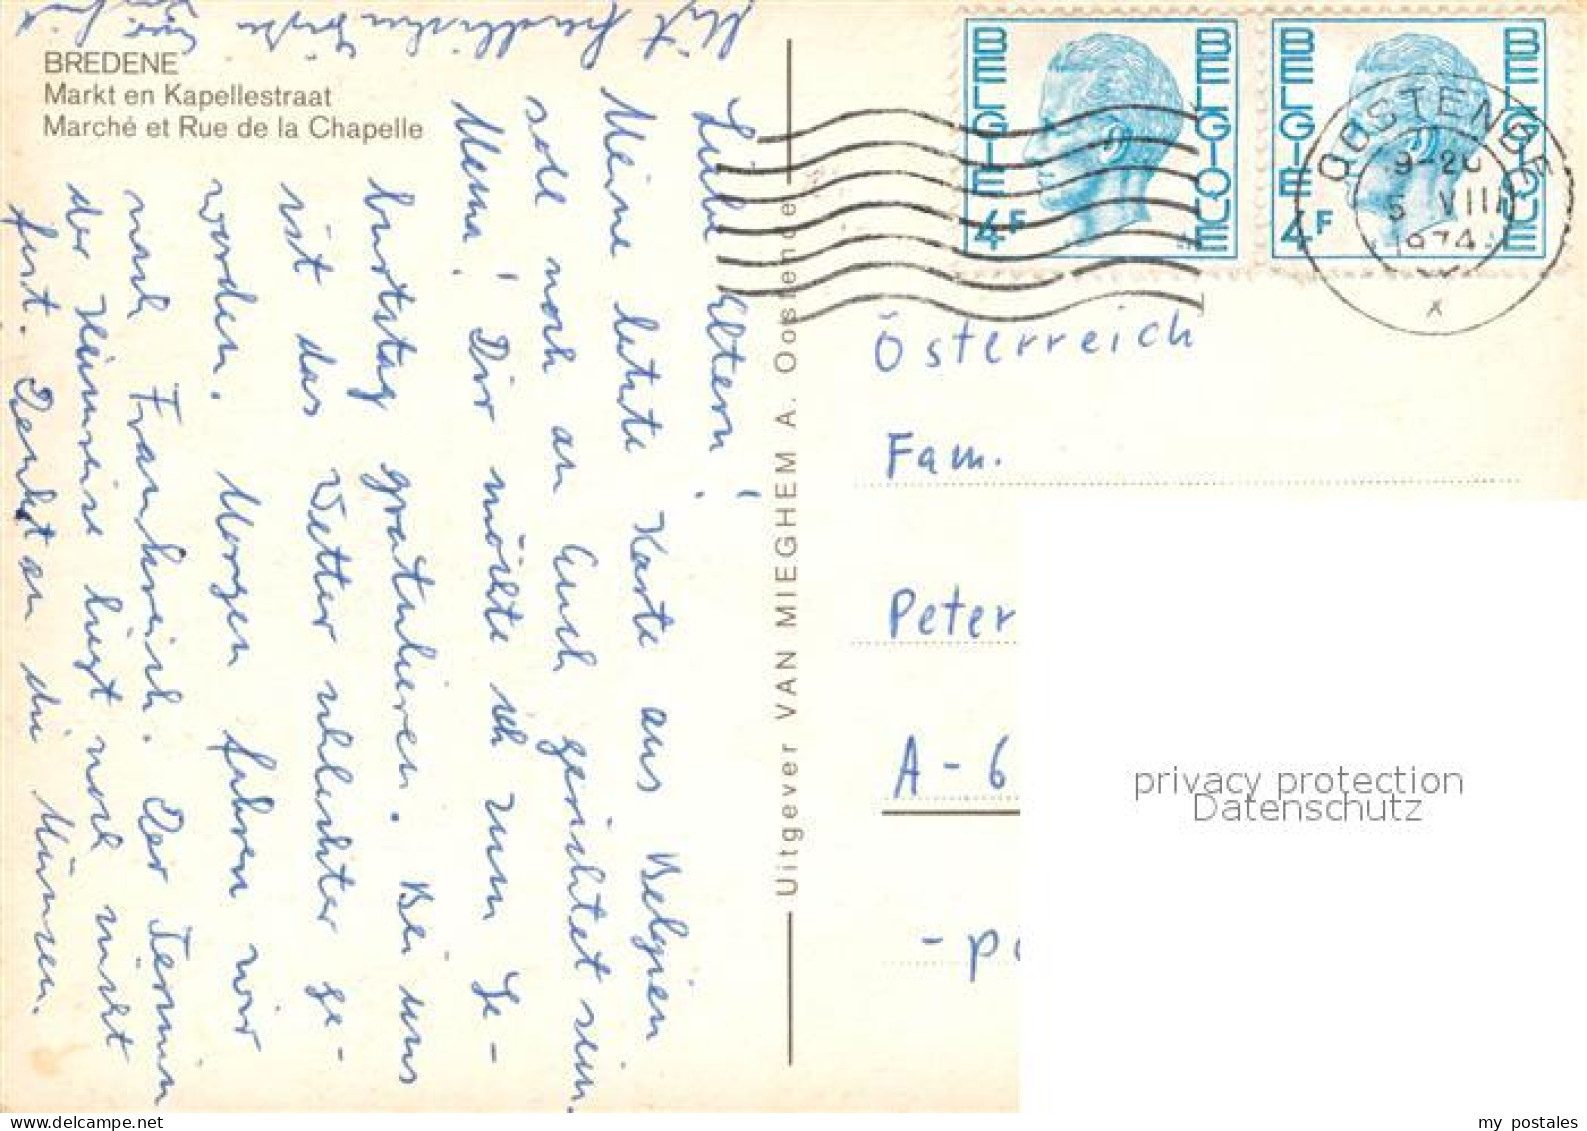 BREDENE
Markt en Kapellestraat
Marché et Rue de la Chapelle
Liebe Eltern!
Meine letzte Karte aus Belgien
soll noch an Euch gerichtet sein.
Mama! Dir möchte ich zum Ge-
burtstag gratulieren. Bei uns
ist das Wetter schlechter ge-
worden. Morgen fahren wir
nach Frankreich. Der Termin
der Heimreise liegt noch nicht
fest. Denkt an die Münzen.
Mit
Uitgever VAN MIEGHEM A. Oostende
BELGIE BELGIQUE
4F
BELGIE BELGIQUE
4F
OOSTENDE
9-20
5 VIII
1974
x
Österreich
Fam.
Peter
A-6
privacy protection
Datenschutz
my postales